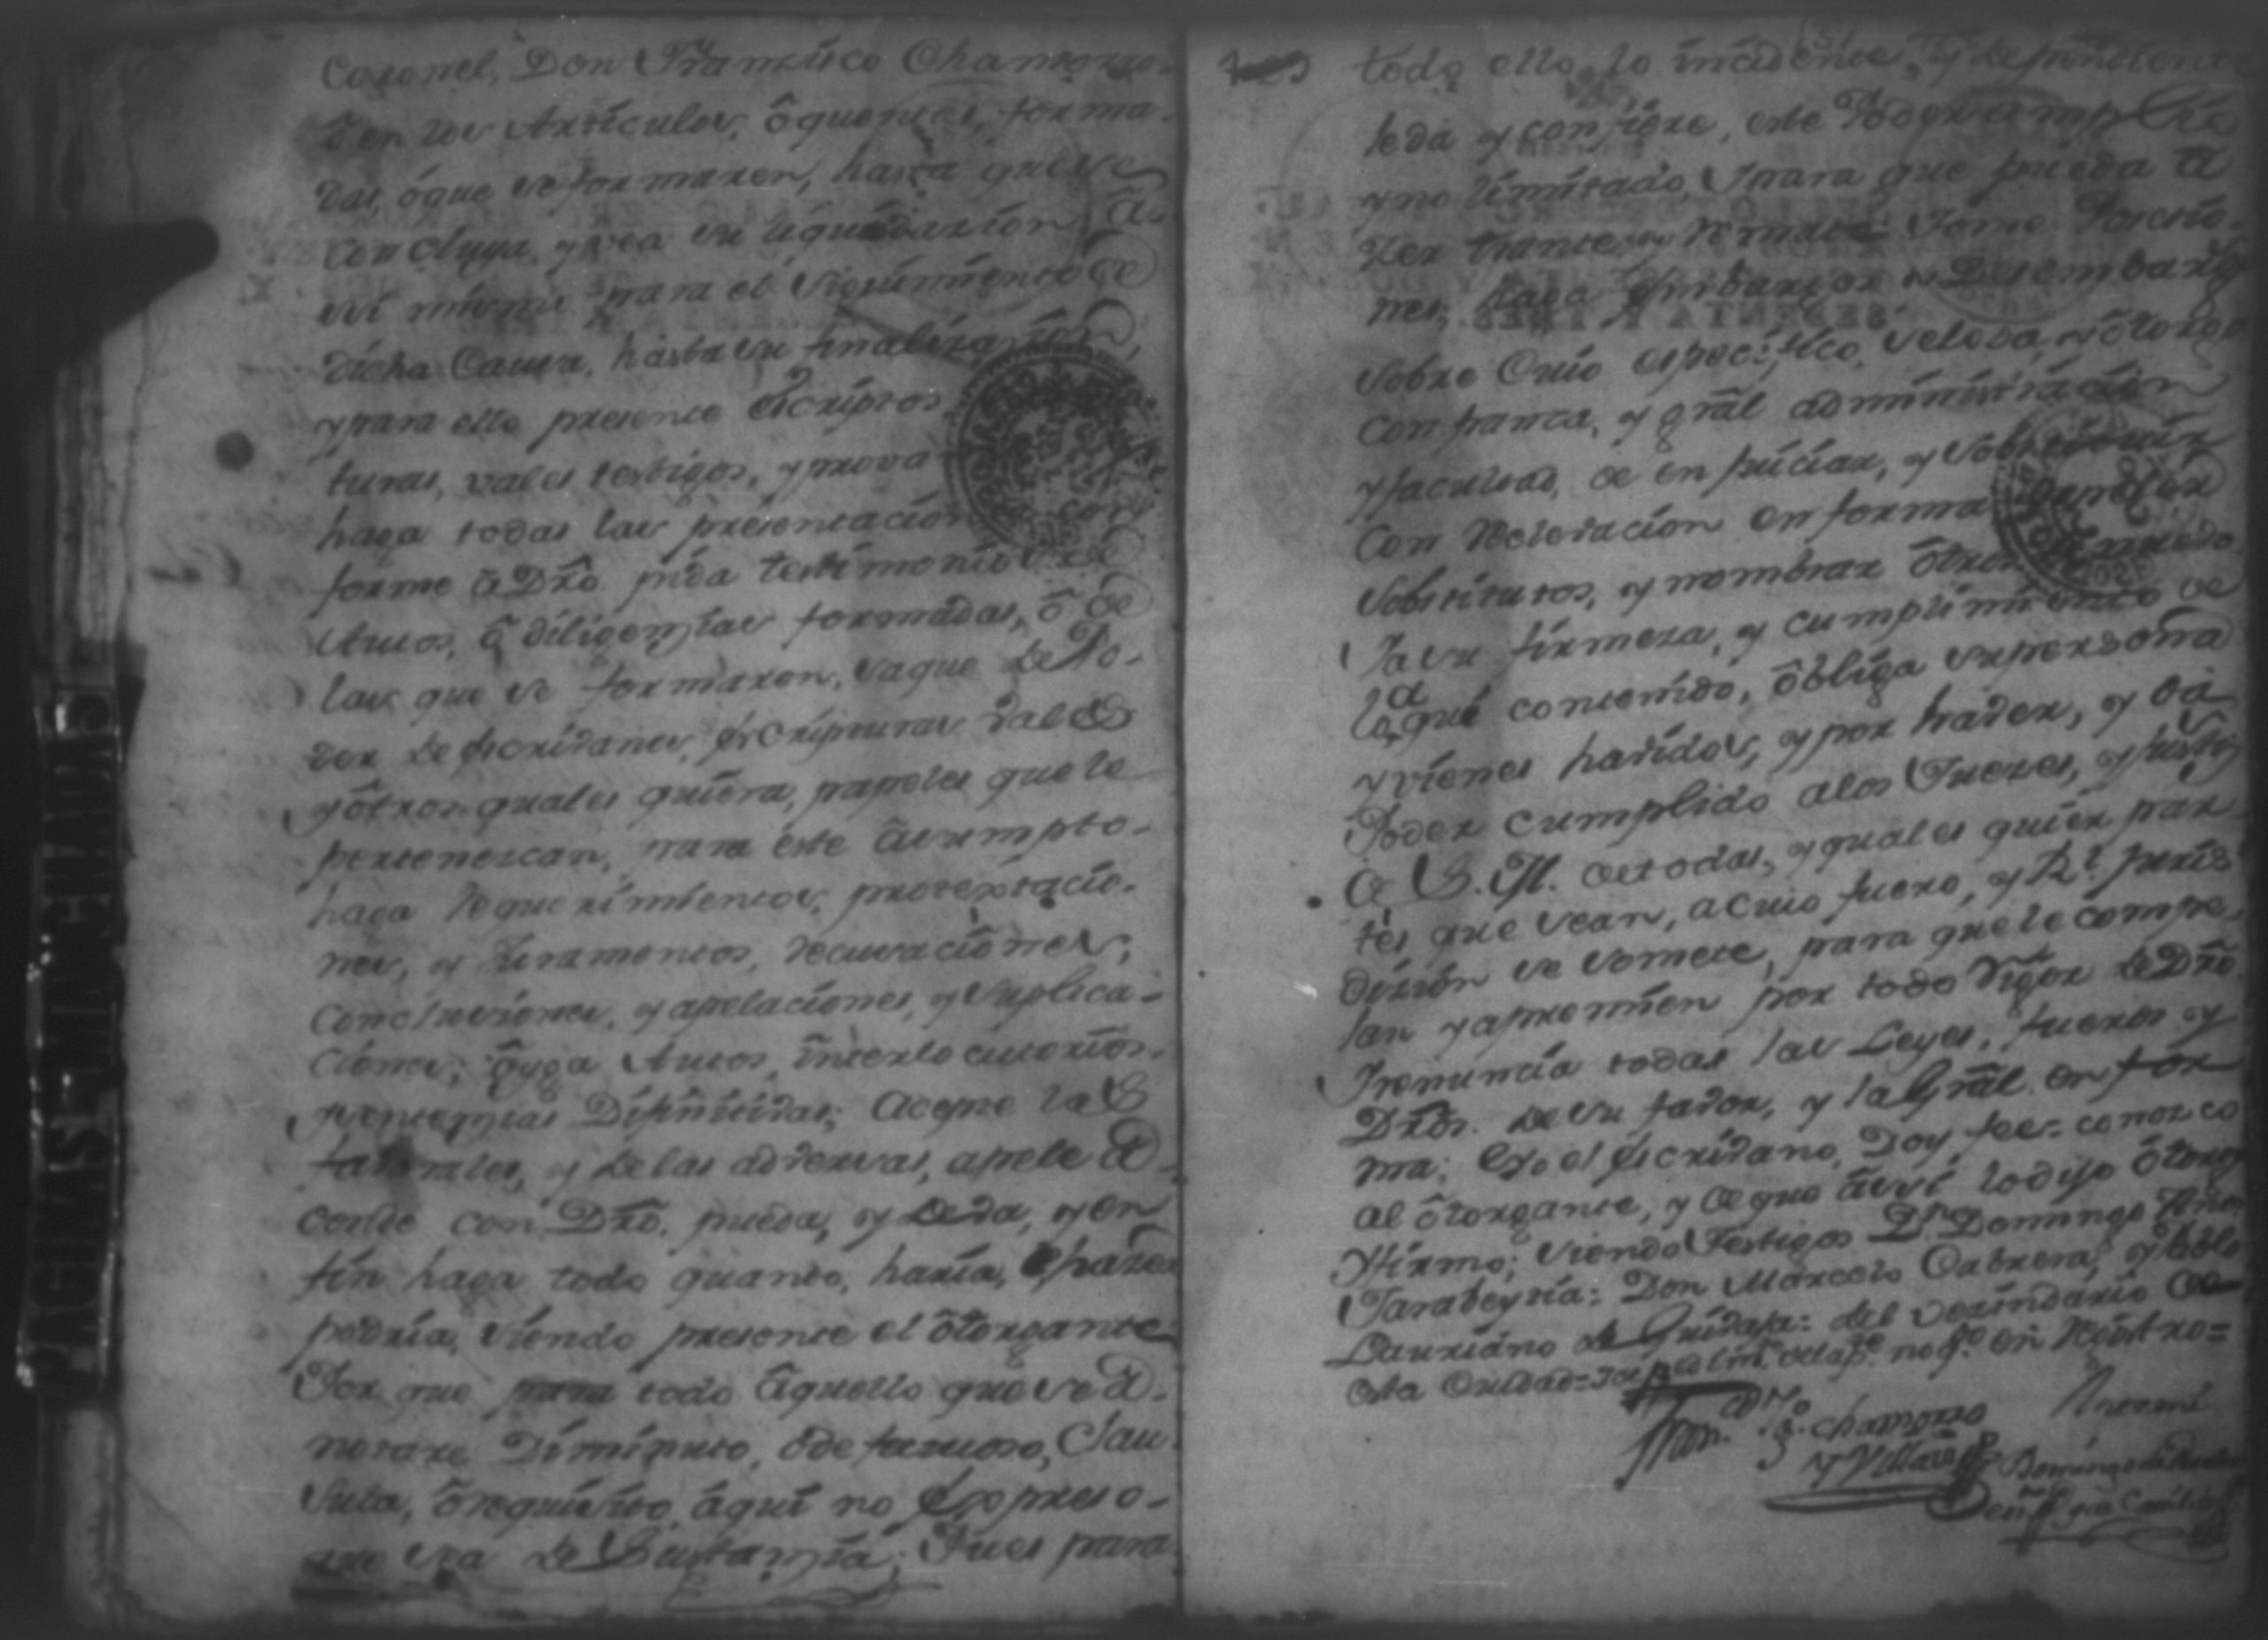 Coronel, Don Francisco Chamorro
ô en los Articulos, ô quentas, forma-
das, ó que se formaren, hasta que se
concluya, y vea su liquidazion, â
si mismo para el siguimiento de
dicha Causa, hasta su finalizazion,
y para ello presente escriptos,
turas, vales testigos, y prova
haga todas las presentacion con
forme â Dro. pida testimonios de
Autos, ô diligenzias formadas, ô de
las que se formaren, saque de Po-
der de escrivanos, escripturas vales
y ôtros quales quiera, papeles que le
pertenezcan, para este âsumpto-
haga requerimientos, protextacio-
nes, y Juramentos, recusaciones,
Conclusiones, y apelaciones, y Suplica-
ciones; ôyga Autos, interlocutorios
y sentenzias Difinitivas; Acepte las
favorables, y de las adversas, apele â
donde con Dro. pueda, y deva, y en
fin haga todo quanto, haria, y hazer
podria, siendo presente el ôtorgante
Por que para todo âquello que se â
notare Diminuto, ô defectuoso, Clau-
sula, ô requisito, âqui no Expreso-
que sea de Sustanzia; Pues para
todo ello, lo incidente, y dependiente
le da y confiere, este Poder amplio
y no limitado, y para que pueda â
zer transe y remate Tome Poscesio-
nes, haga Embargos y Desembargos
sobre Cuio espocifico, se lo da, y ôtorga
con franca, y gral administracion
y facultad, de enjuiciar, y sobstituir
Con relevacion en forma
sobstitutos, y nombrar ôtros de nuevo
Ya su firmeza, y cumplimiento de
lo que contenido, ôbliga su persona
y vienes havidos, y por haver, y da
Poder cumplido a los Juezes, y Justi
de S. M. de todas, y quales quier par
tes que sean, a cuio fuero, y Rl. Juris
dizion se somete, para que le compe-
lan y apremien por todo rigor de Dro
Y renuncia todas las Leyes, fueros y
Dros. de su favor, y la Gral. en for
ma; Yo el escrivano, Doy fee= conozco
al ôtorgante, y de que âssi lo dijo ôtorgo
y firmo; siendo Testigos Dn. Domingo
Yarabeytia: Don Marcelo Cabrera, y Pablo
Lauriano de Grixalva: del vezindario de
esta Ciudad=
Fran.co Chamorro
y Villavi
Ante mi
Domingo